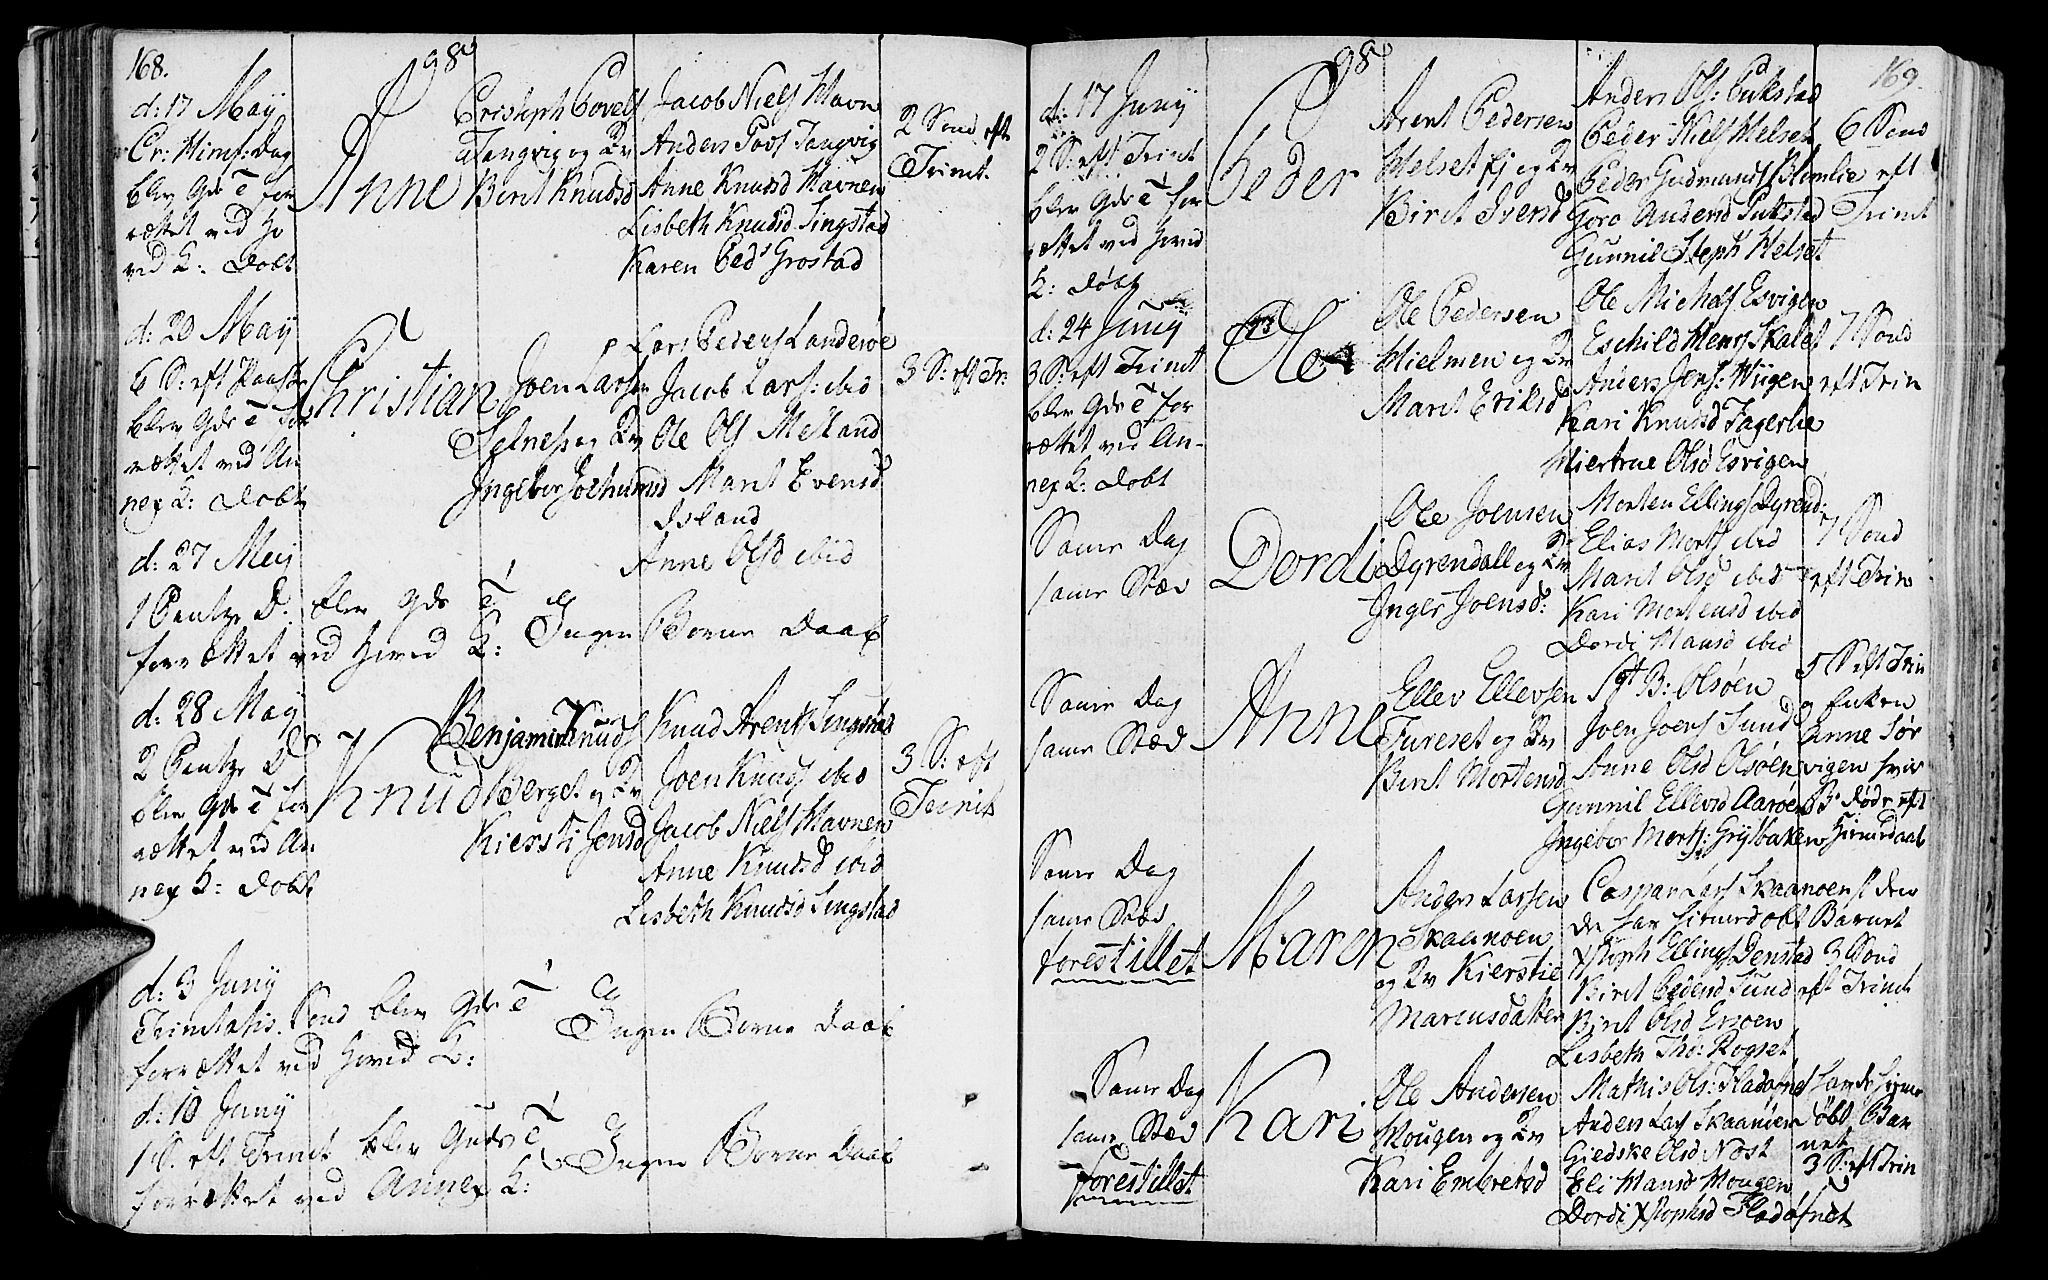 168.
98
d: 17 May
Cr: Himf: Dag
blev Gds T for
rettet ved Ho
ved K: Dobt
Anne
Cristoph Povels
Tangvig og Kv
Birit Knudsd
Jacob Niels Havn
Anders Povs Tangvig
Anne Knudsd Havnen
Lisbeth Knudsd Singstad
Karen Peds Grostad
2 Sond eft
Trinit.
d: 20 May
6 S: eft Paaske
blev Gds T for
rettet ved An
nex K: Dobt
Christian
Joen Larsen
Selnes og Kv
Ingebor Jochumsd
Lars Peders Landerøe
Jacob Lars: ibid
Ole Ols Melland
Marit Evensd
Island
Anne Olsd ibid
3 S: eft Tr:
d: 27 Mey
1 Pentze D: blev Gds T
forrettet ved Hoved K:
Ingen Borne Daab
d: 28 May
2 Pentze D
blev Gds T for
rettet ved An
nex K: Dobt
Knud
Benjamin Knuds
Berget og Kv
Kiersti Jensd
Knud Arents Singstad
Joen Knuds ibid
Jacob Niels Havnen
Anne Knudsd ibid
Lisbeth Knudsd Singstad
3 S: eft
Trinit
d: 3 Juny
Trinitatis Sond blev Gds T
forrettet ved Hoved K:
Ingen Borne Daab
d: 10 Juny
1 S. eft Trinit blev Guds T
forrettet ved Annex K:
Ingen Borne Daab
98
169.
d: 17 Juny
2 S: eft Trinit
blev Gds T for
rettet ved Hoved
K: Døbt
Peder
Arent Pedersen
Helset fj og Kv
Birit Iversd
Anders Ols: Pukstad
Peder Niels Helset
Peder Gudmunds Blomlie
Goro Andersd Pukstad
Gunnil Steph Helset
6 Sond
eft
Trinit
d: 24 Juny
3 S: eft Trinit
blev Gds T for
rettet ved An-
nex K: Dobt
Ole
Ole Pedersen
Hielmen og Kv
Marit Eriksd
Ole Michels Esvigen
Eschild Henr Skalet
Anders Jens: Wiigen
Kari Knudsd Fagerlie
Hiertrue Olsd Esvigen
7 Sond
eft Trin
Same Dag
same Stæd
Dordi
Ole Joensen
Dyrendall og Kv
Inger Joensd:
Morten Ellings Dyrend:
Elias Morts ibid
Marit Olsd ibid
Kari Mortensd ibid
Dordi Hansd ibid
7 Sond
eft Trin
Same Dag
same Stæd
Anne
Ellev Ellevsen
Fureset og Kv
Birit Mortensd
Sgt B: Olsøen
Joen Joens Sund
Anne Olsd Olsøen
Gunnil Ellevsd Aarøen
Ingebor Morts: Grisbaken
5 S eft Trin
og Enken
Anne Sør
vigen hvis
B: døde eft
Hiemedaab
Same Dag
same Stæd
forestillet
Maren
Anders Larsen
Skaanoen
og Kv Kierstie
Marcusdatter
Caspar Lars Skaanoen
de har hiemedøbt Barnet
Xstoph Ellings Denstad
Birit Pedersd Sund
Birit Olsd Ersoen
Lisbeth Tho: Rogset
3 Sond
eft Trinit
Same Dag
same Stæd
forestillet
Kari
Ole Andersen
Mougen og Kv
Kari Embretsd
Mathis Ols: Fladosnes
Anders Lars Skaanoen
Giedske Olsd Nost
Eli Hansd Mougen
Dordi Xstophsd Fladosnet
har de hieme
døbt Bar
net
3 S: eft Trin